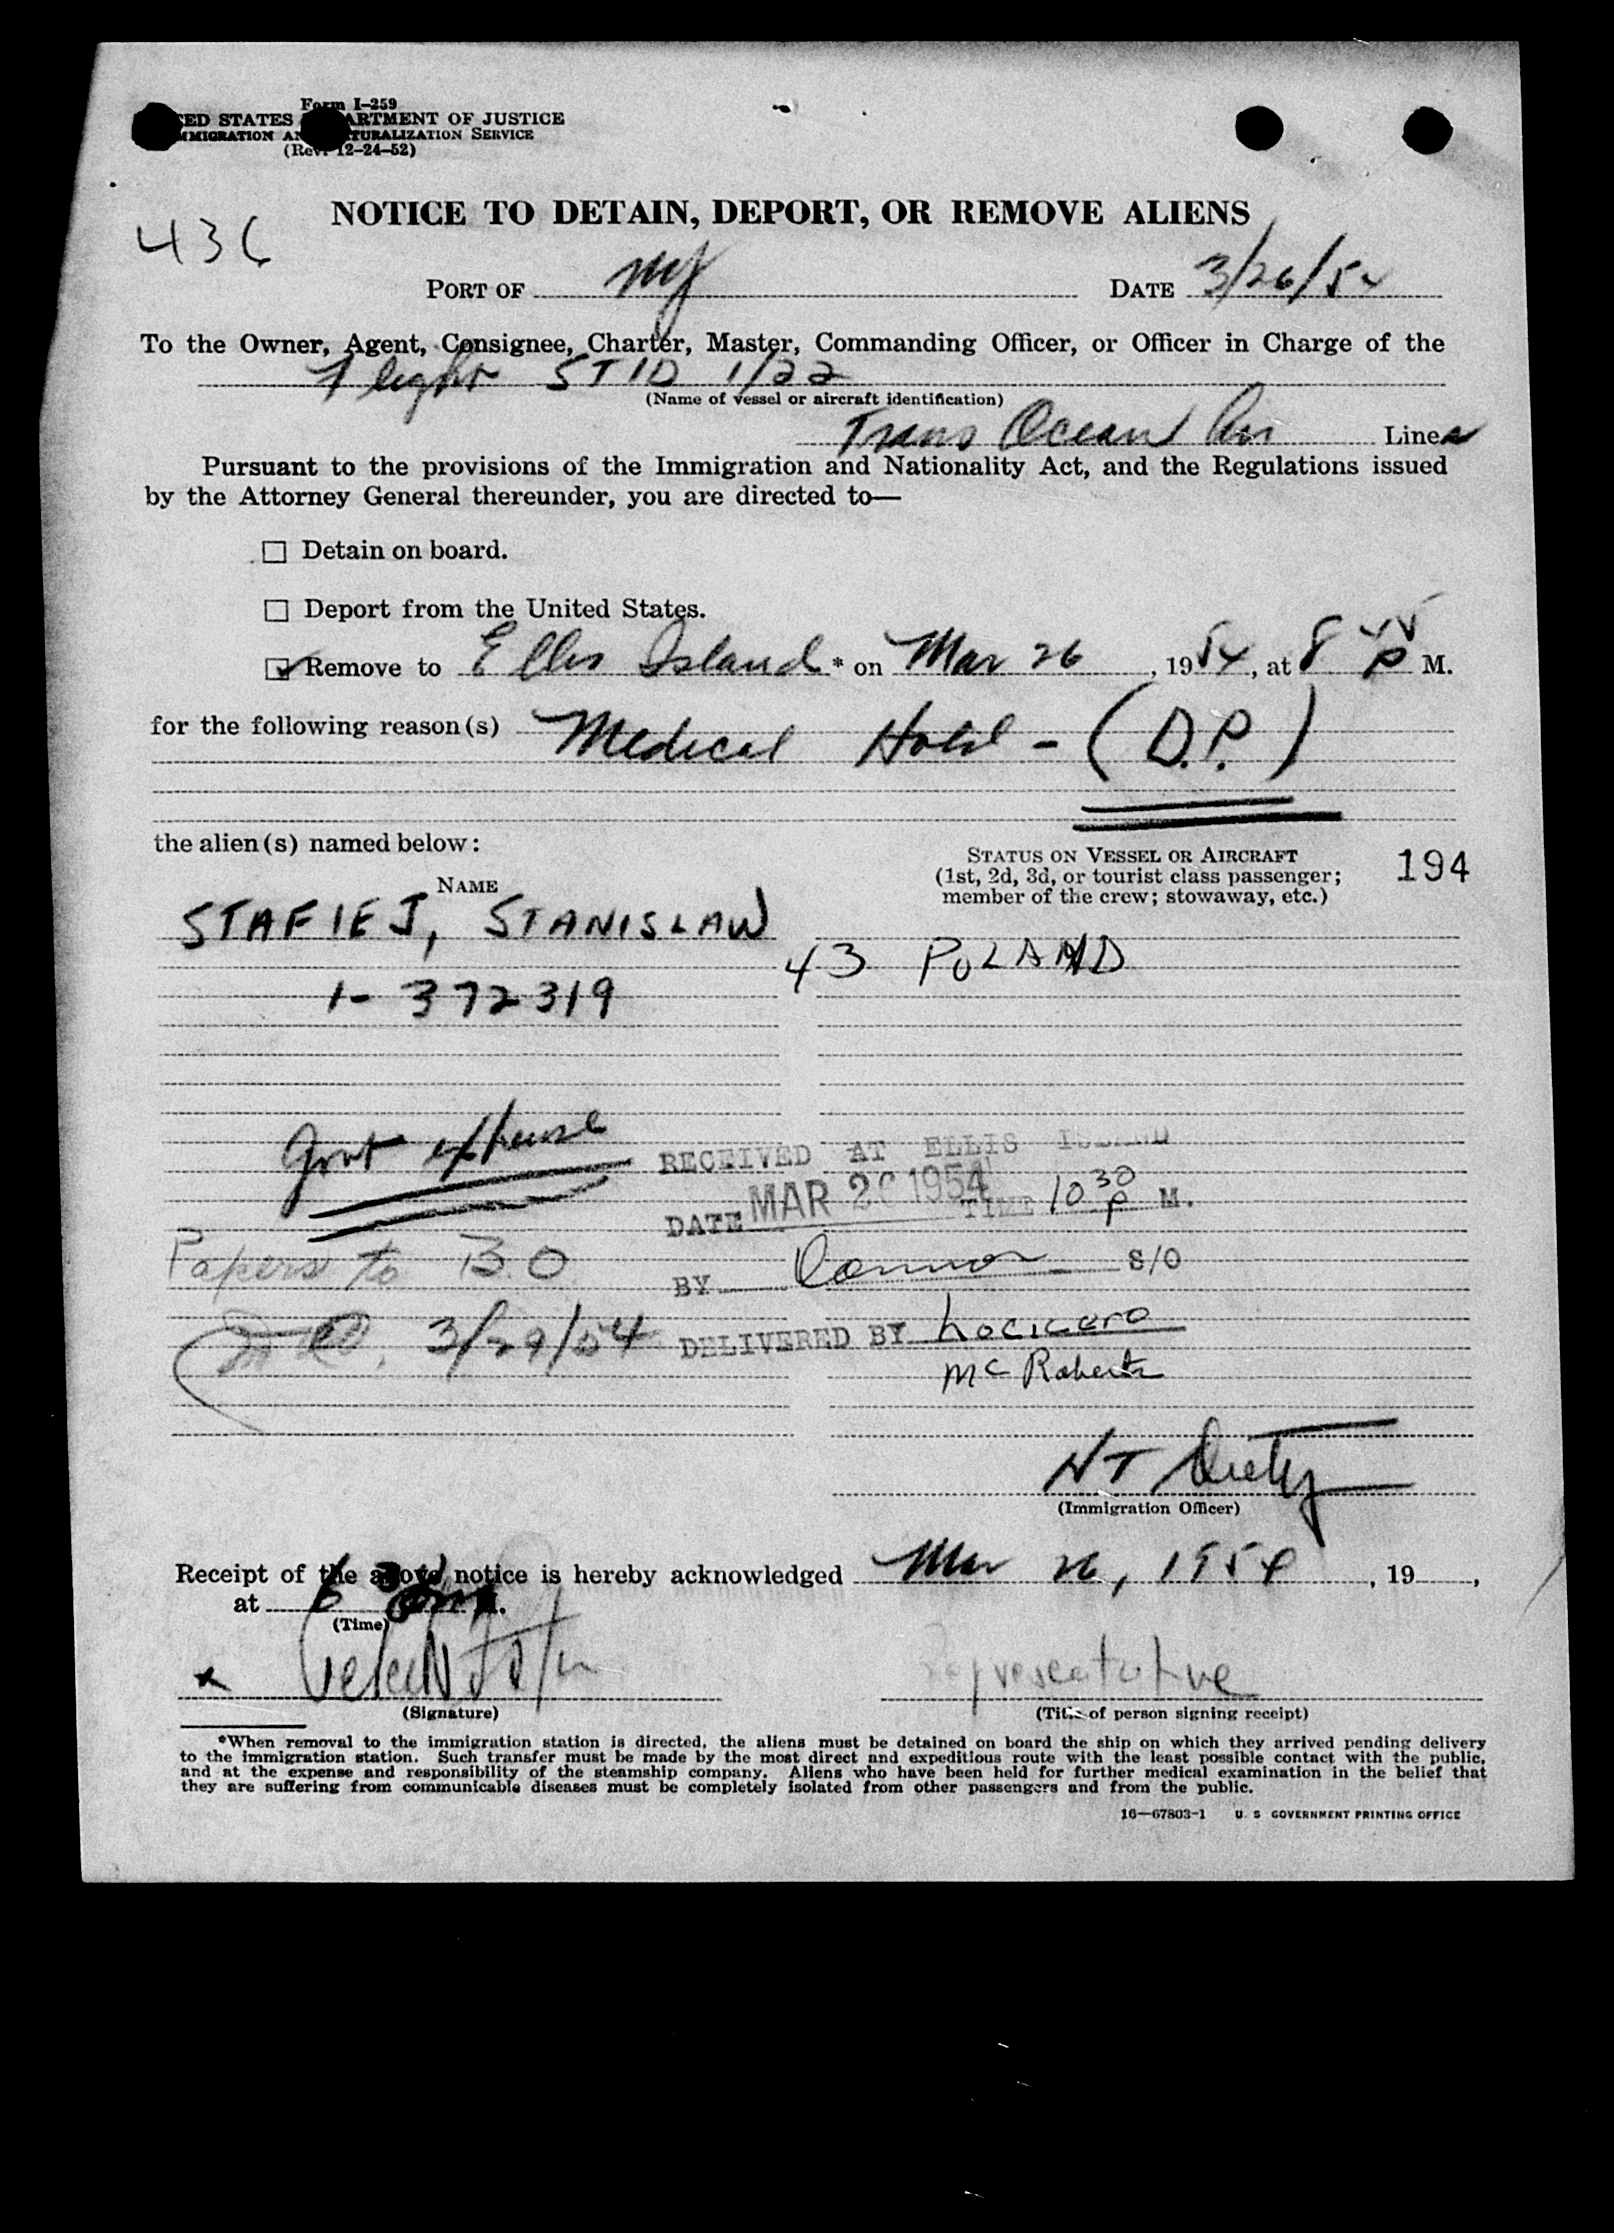 Form I-259
ED STATES ARTMENT OF JUSTICE
MMIGRATION AN TURALIZATION SERVICE
(Rev. 12-24-52)
NOTICE TO DETAIN, DEPORT, OR REMOVE ALIENS
436
PORT OF NY DATE 3/26/54
To the Owner, Agent, Consignee, Charter, Master, Commanding Officer, or Officer in Charge of the
Flight 5T1D 1/22
(Name of vessel or aircraft identification)
Trans Ocean Air Lines
Pursuant to the provisions of the Immigration and Nationality Act, and the Regulations issued
by the Attorney General thereunder, you are directed to—
☐ Detain on board.
☐ Deport from the United States.
☑ Remove to Ellis Island * on Mar 26, 1954, at 8 45 P M.
for the following reason(s) Medical Hold - (D.P.)
the alien(s) named below:
STATUS ON VESSEL OR AIRCRAFT
(1st, 2d, 3d, or tourist class passenger;
member of the crew; stowaway, etc.)
194
NAME
STAFIEJ, STANISLAW
43 POLAND
1-372319
Govt expense
RECEIVED AT ELLIS ISLAND
DATE MAR 26 1954 TIME 10 30 P M.
Papers to B.O
BY Connor S/O
3/29/54 DELIVERED BY Locicero
McRoberts
NT
(Immigration Officer)
Receipt of the above notice is hereby acknowledged Mar 26, 1954, 19 ,
at M.
(Time)
x
Representative
(Signature)
(Title of person signing receipt)
*When removal to the immigration station is directed, the aliens must be detained on board the ship on which they arrived pending delivery
to the immigration station. Such transfer must be made by the most direct and expeditious route with the least possible contact with the public,
and at the expense and responsibility of the steamship company. Aliens who have been held for further medical examination in the belief that
they are suffering from communicable diseases must be completely isolated from other passengers and from the public.
16—67803-1 U. S GOVERNMENT PRINTING OFFICE